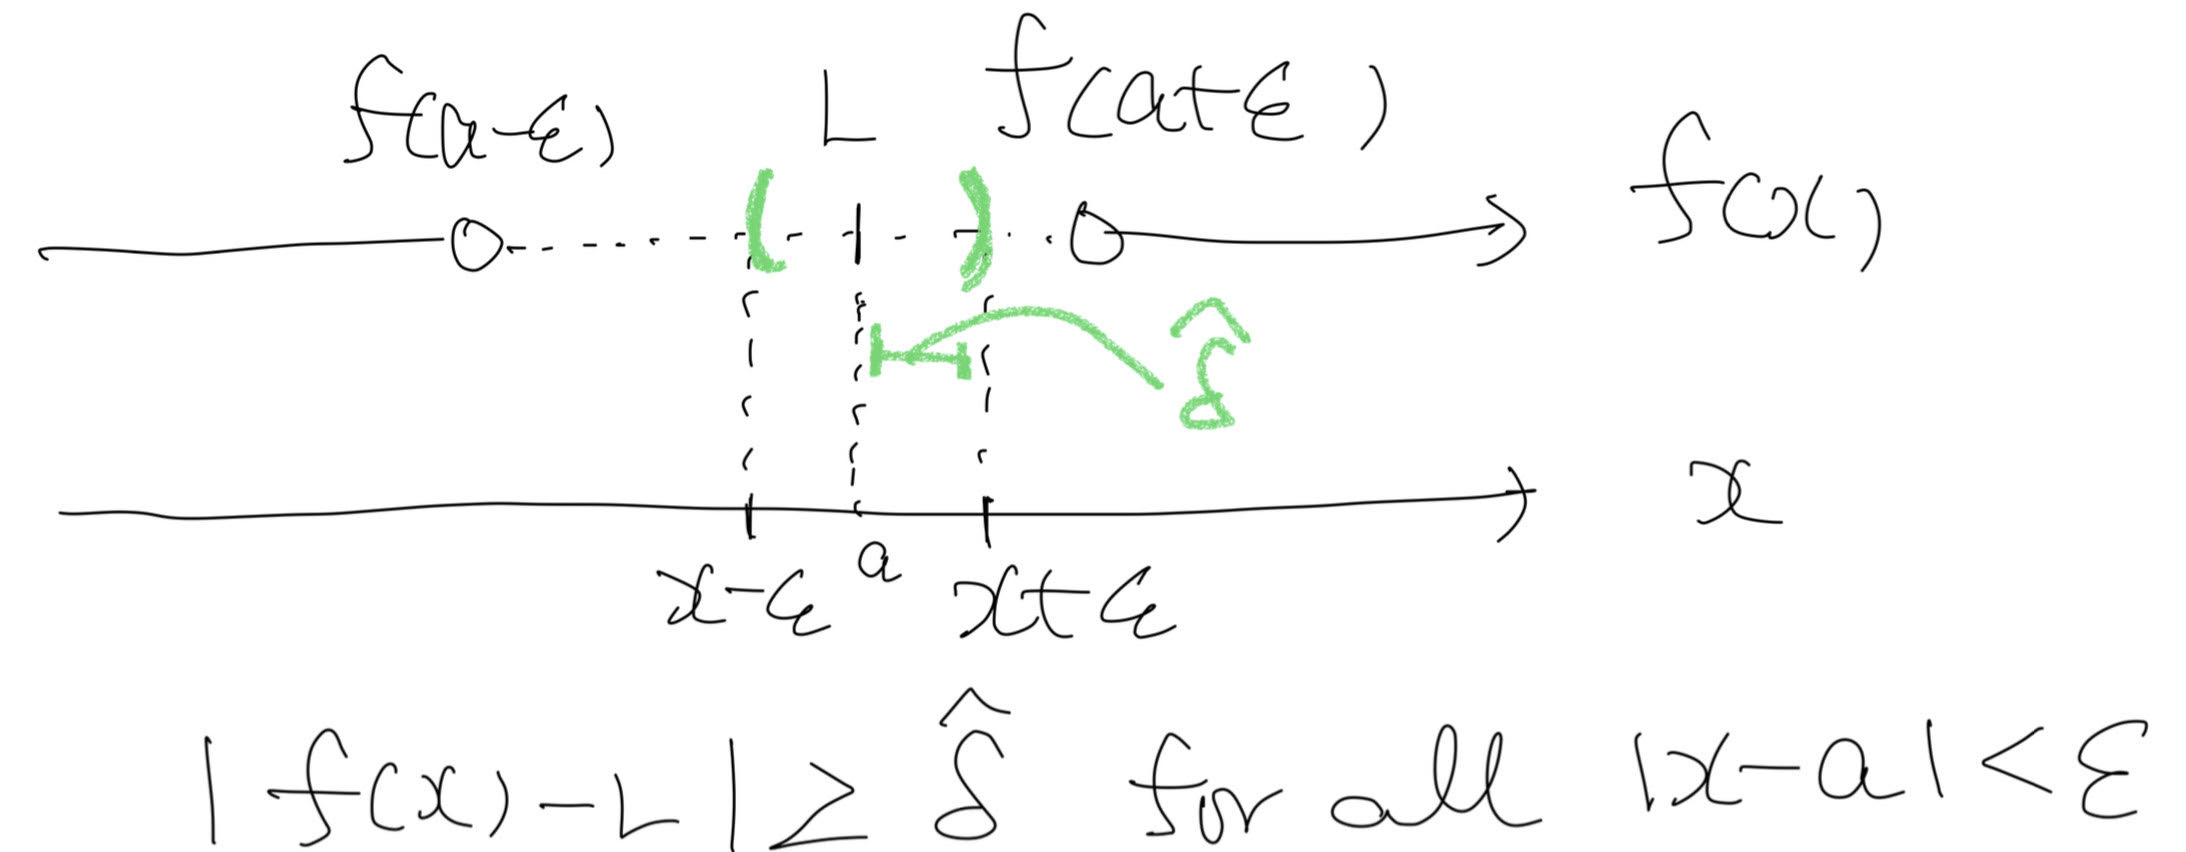 f(a-ε) L f(a+ε)
f(x)
δ̂
x
x-ε a x+ε
|f(x)-L| ≥ δ̂ for all |x-a| < ε